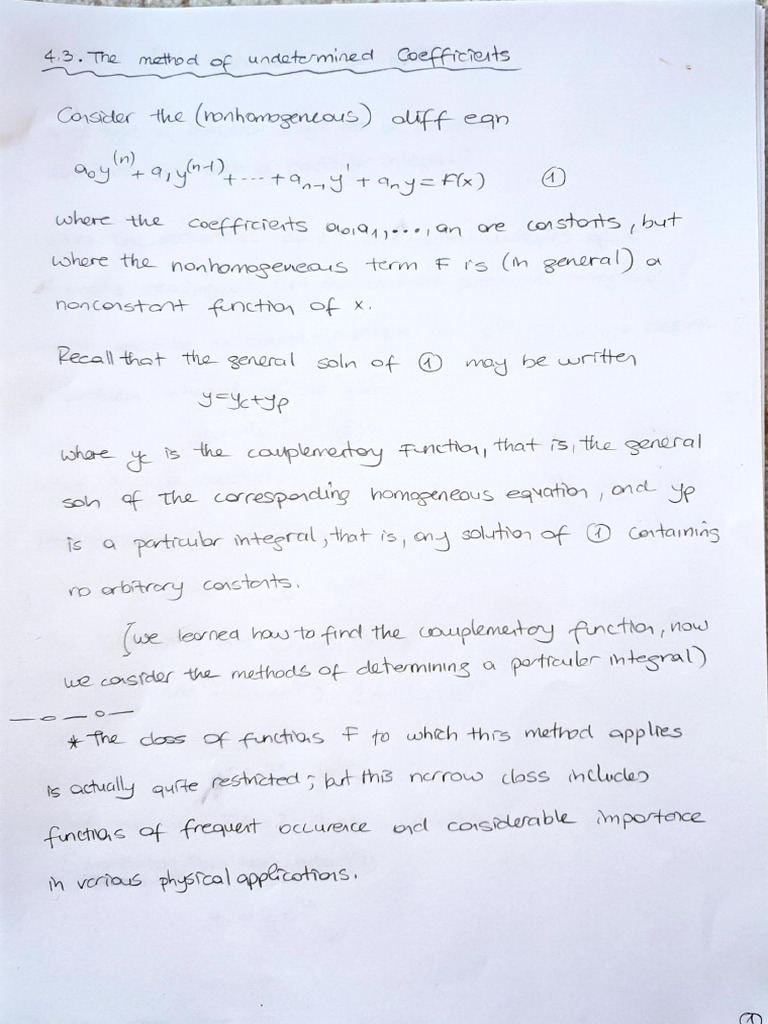 4.3. The method of undetermined Coefficients
Consider the (nonhomogeneous) diff eqn
a₀y⁽ⁿ⁾ + a₁y⁽ⁿ⁻¹⁾ + ... + aₙ₋₁y' + aₙy = F(x) ①
where the coefficients a₀,a₁,...,an are constants, but
where the nonhomogeneous term F is (in general) a
nonconstant function of x.
Recall that the general soln of ① may be written
y=yc+yp
where yc is the complementary function, that is, the general
soln of the corresponding homogeneous equation, and yp
is a particular integral, that is, any solution of ① containing
no arbitrary constants.
(we learned how to find the complementary function, now
we consider the methods of determining a particular integral)
* The class of functions F to which this method applies
is actually quite restricted; but this narrow class includes
functions of frequent occurence and considerable importance
in various physical applications.
①